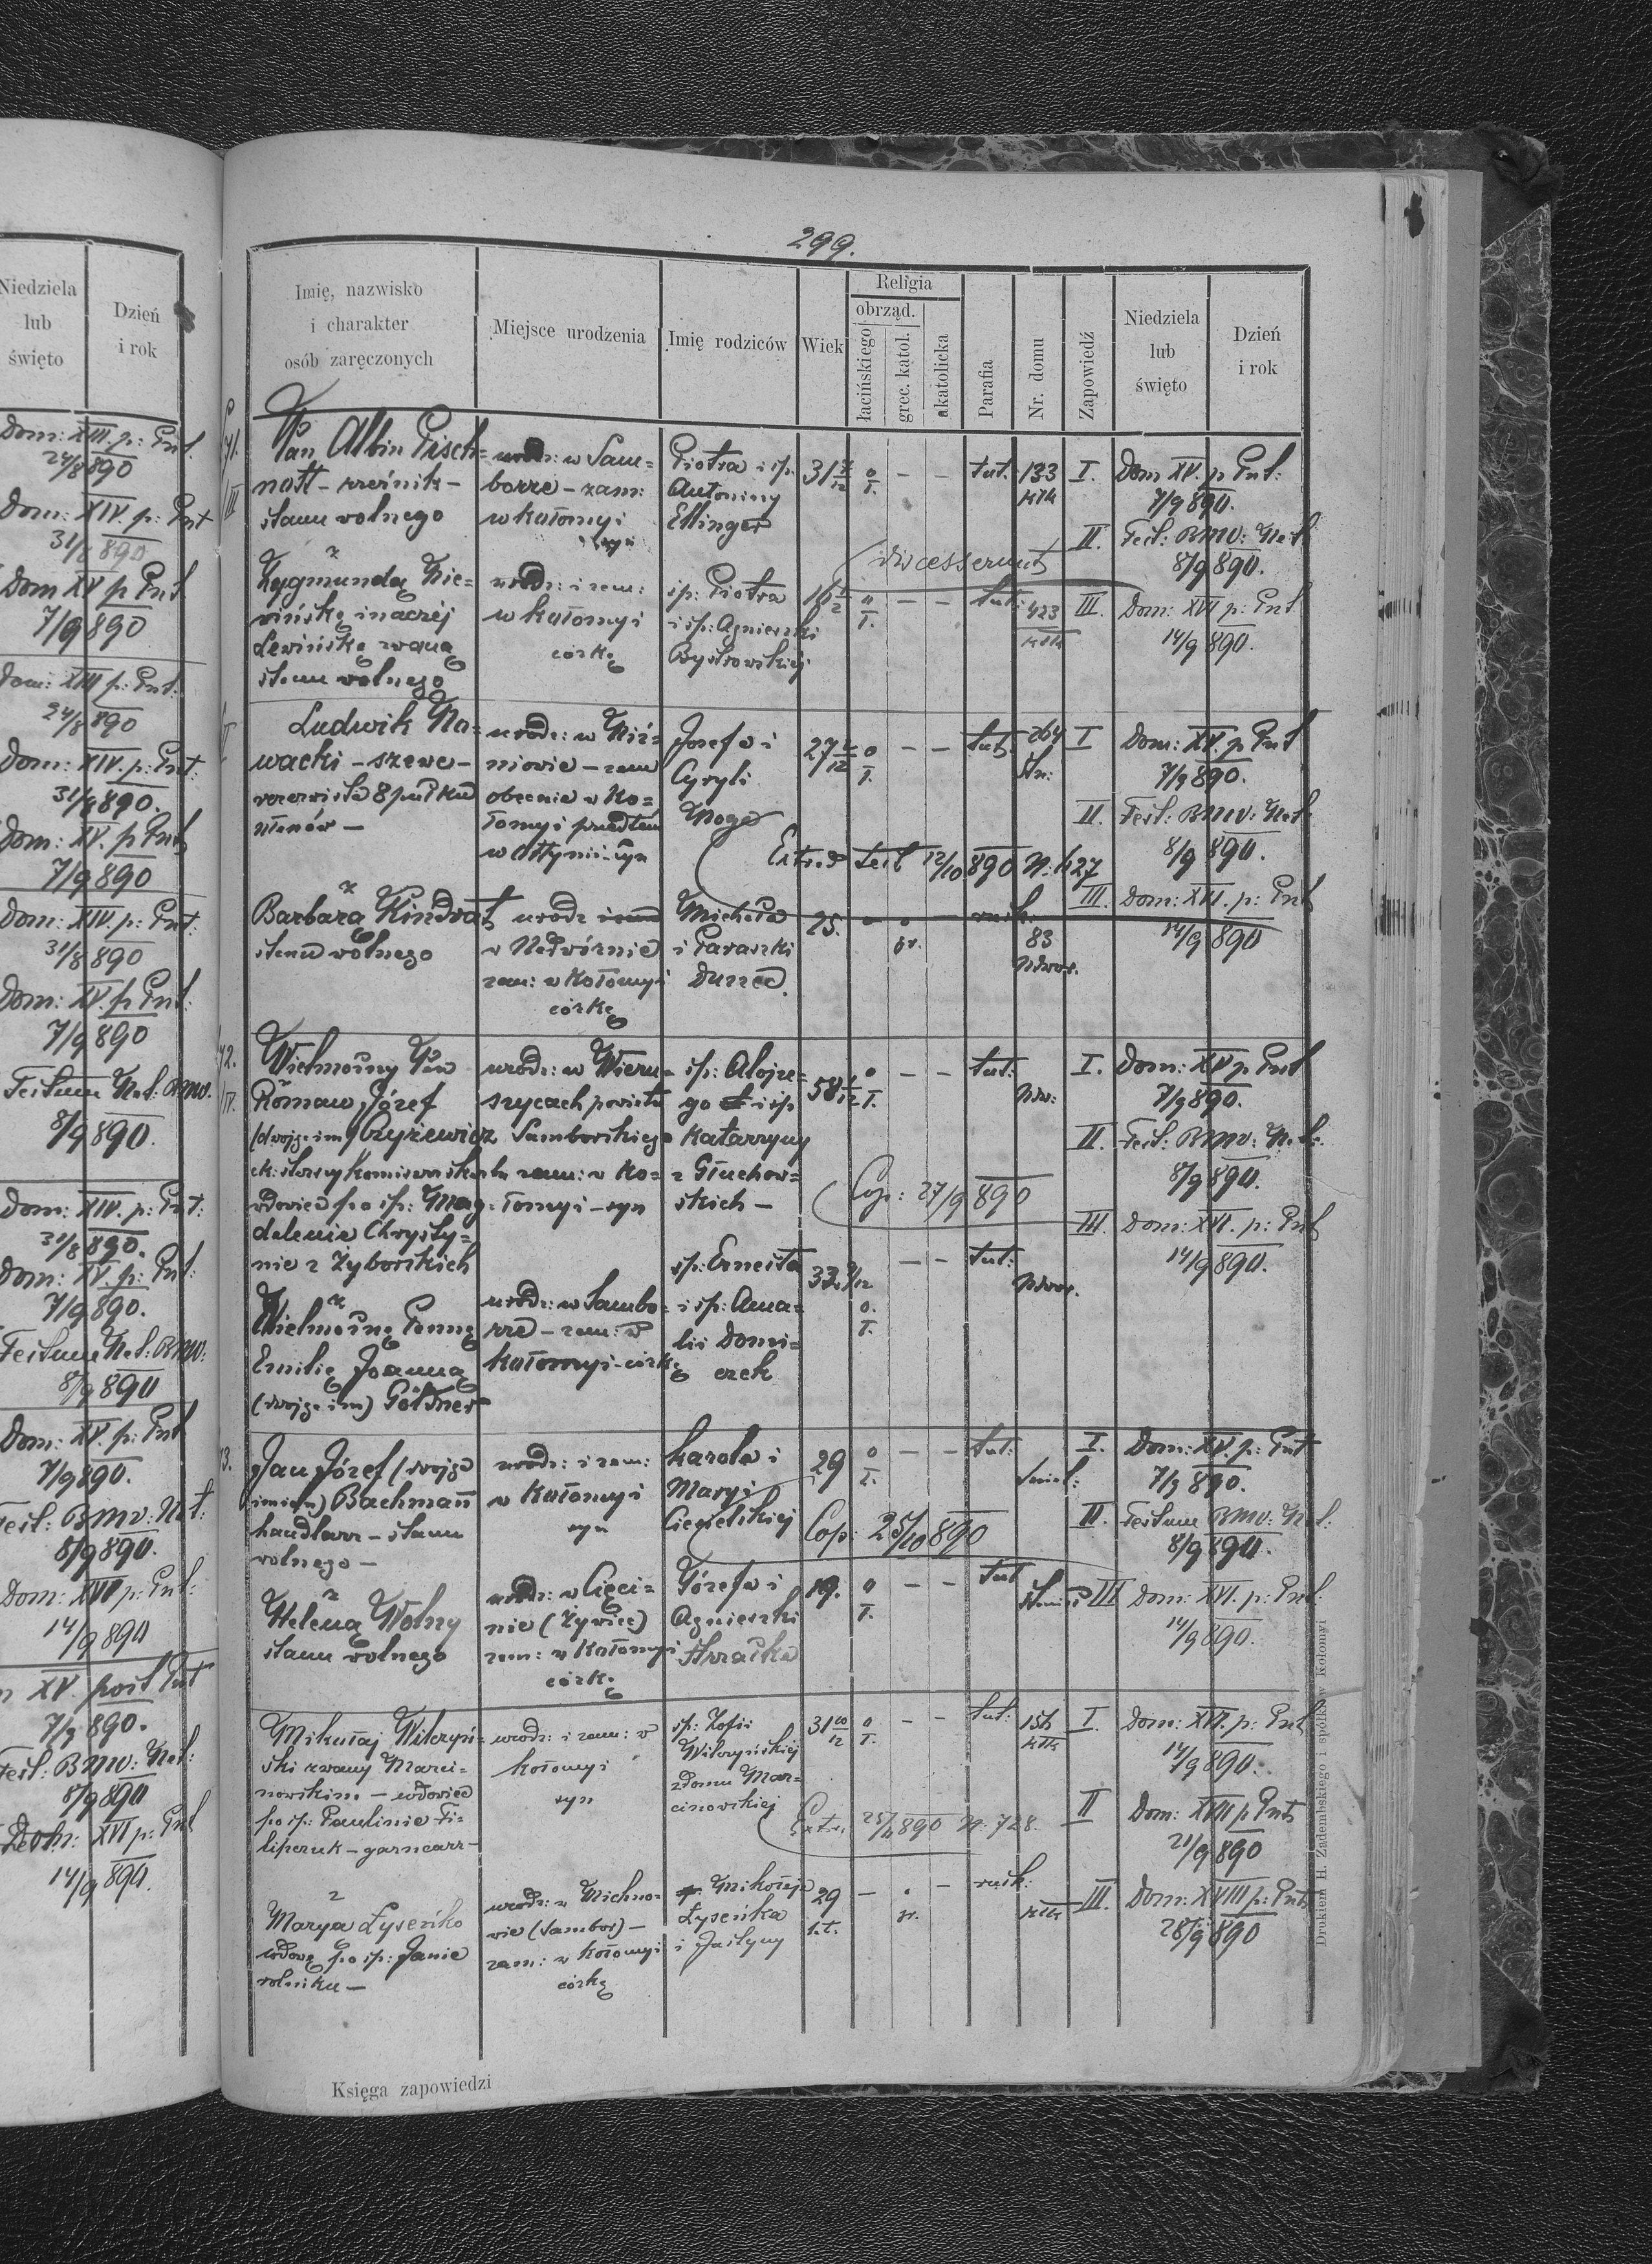 Niedziela
lub
święto
Dzień
i rok
Dom: XIII. p: Pnt.
24/8 890
Dom: XIV. p: Pnt
31/8 890
Dom XV p Pnt
7/9 890
Dom: XIII p: Pnt:
24/8 890
Dom: XIV. p: Pnt:
31/8 890.
Dom: XV. p: Pnt
7/9 890
Dom: XIV. p: Pnt:
31/8 890
Dom: XV. p Pnt:
7/9 890
Festum Nat: BMV.
8/9 890.
Dom: XIV. p: Pnt:
31/8 890.
Dom: XV. p: Pnt:
7/9 890.
Festum Nat: BMV:
8/9 890
Dom: XV. p: Pnt
7/9 890.
Fest: BMV: Nat:
8/9 890.
Dom: XVI p: Pnt:
14/9 890
XV. post Pnt
7/9 890.
Fest: BMV: Nat:
8/9 890
Dom: XVI p: Pnt
14/9 890.
299.
Imię, nazwisko
i charakter
osób zaręczonych
Miejsce urodzenia
Imię rodziców
Wiek
Religia
obrząd.
łacińskiego
grec. katol.
akatolicka
Parafia
Nr. domu
Zapowiedź
Niedziela
lub
święto
Dzień
i rok
Pan Albin Fisch=
nott - rzeźnik -
stanu wolnego
urodz: w Sam=
borze - zam:
w Kołomyi
syn
Piotra i śp:
Antoniny
Ellinger
31
tut:
133
I. Dom XV. p Pnt:
7/9 890.
II. Fest: BMV: Nat
8/9 890.
discesserunt
z
Zygmundą Nie=
wińską inaczej
Lewińską zwaną
stanu wolnego
urodz: i zam:
w Kołomyi
córką
śp: Piotra
i śp: Agnieszki
Bystrowskiej
tut:
423
III. Dom: XVI p: Pnt
14/9 890.
Ludwik No=
wacki - szewc -
rezerwista 8 pułku
ułanów -
urodz: w Niż=
niowie - zam
obecnie w Ko=
łomyi przedtem
w Ottynii - syn
Josefa i
Cyryli
Noga
27
tut:
264
I Dom: XV. p Pnt
7/9 890.
II. Fest: BMV: Nat:
8/9 890.
Extrad test 12/10 890 N: 427
z
Barbara Kindrat
stanu wolnego
urodz
w Nadwórnie
zam: w Kołomyi
córką
Michała
i Paraszki
25.
gr.
rusk:
83
III. Dom: XVI. p: Pnt
14/9 890
Wielmożny Pan
Roman Józef
(dwojga im) Czyżewicz
wdowiec po śp: Mag=
dalenie Chrysty=
nie z Zyborskich
urodz: w Wieru=
szycach powiatu
Samborskiego
zam: w Ko=
łomyi - syn
śp: Alojze=
go i śp
Katarzyny
z Głuchow=
skich -
58
tut:
I. Dom: XV p Pnt
7/9 890.
II. Fest: BMV: Nat:
8/9 890.
Cop: 27/9 890
III Dom: XVI. p: Pnt
14/9 890.
z
Wielmożną Panną
Emilią Joanną
(dwojga im) Göldner
urodz: w Sambo=
rze - zam: w
Kołomyi - córką
śp: Ernesta
i śp: Ama=
lii Domi=
czek
33
tut:
Jan Józef (dwojga
imion) Bachmann
handlarz - stanu
wolnego -
urodz: i zam:
w Kołomyi
syn
Karola i
Maryi
Ciegielskiej
29
tut:
I. Dom: XV. p: Pnt
7/9 890.
II. Festum BMV: Nat:
8/9 890.
Cop: 25/10 890
z
Heleną Wolny
stanu wolnego
urodz: w Cięci=
nie (Żywiec)
zam: w Kołomyi
córką
Józefa i
Agnieszki
19.
tut
III Dom: XVI. p: Pnt:
14/9 890.
Mikołaj Wilczyń=
ski zwany Marci=
nowskim - wdowiec
po śp: Paulinie Fi=
lipczuk - garncarz -
urodz: i zam: w
Kołomyi
syn
śp: Zofii
Wilczyńskiej
z domu Mar=
cinowskiej
31 10/12
tut:
154
I. Dom: XVI. p: Pnt
14/9 890.
II Dom: XVII p Pnt
21/9 890
Extr. 25/11 890 N: 728.
z
Marya Łyseńko
wdową po śp: Janie
rolniku -
urodz: w Michno=
wie (Sambor) -
zam: w Kołomyi
córką
Mikołaja
Łyseńka
i Justyny
29
gr.
rusk:
III. Dom: XVIII p: Pnt
28/9 890
Księga zapowiedzi
Drukiem H. Zadembskiego i spółki w Kołomyi